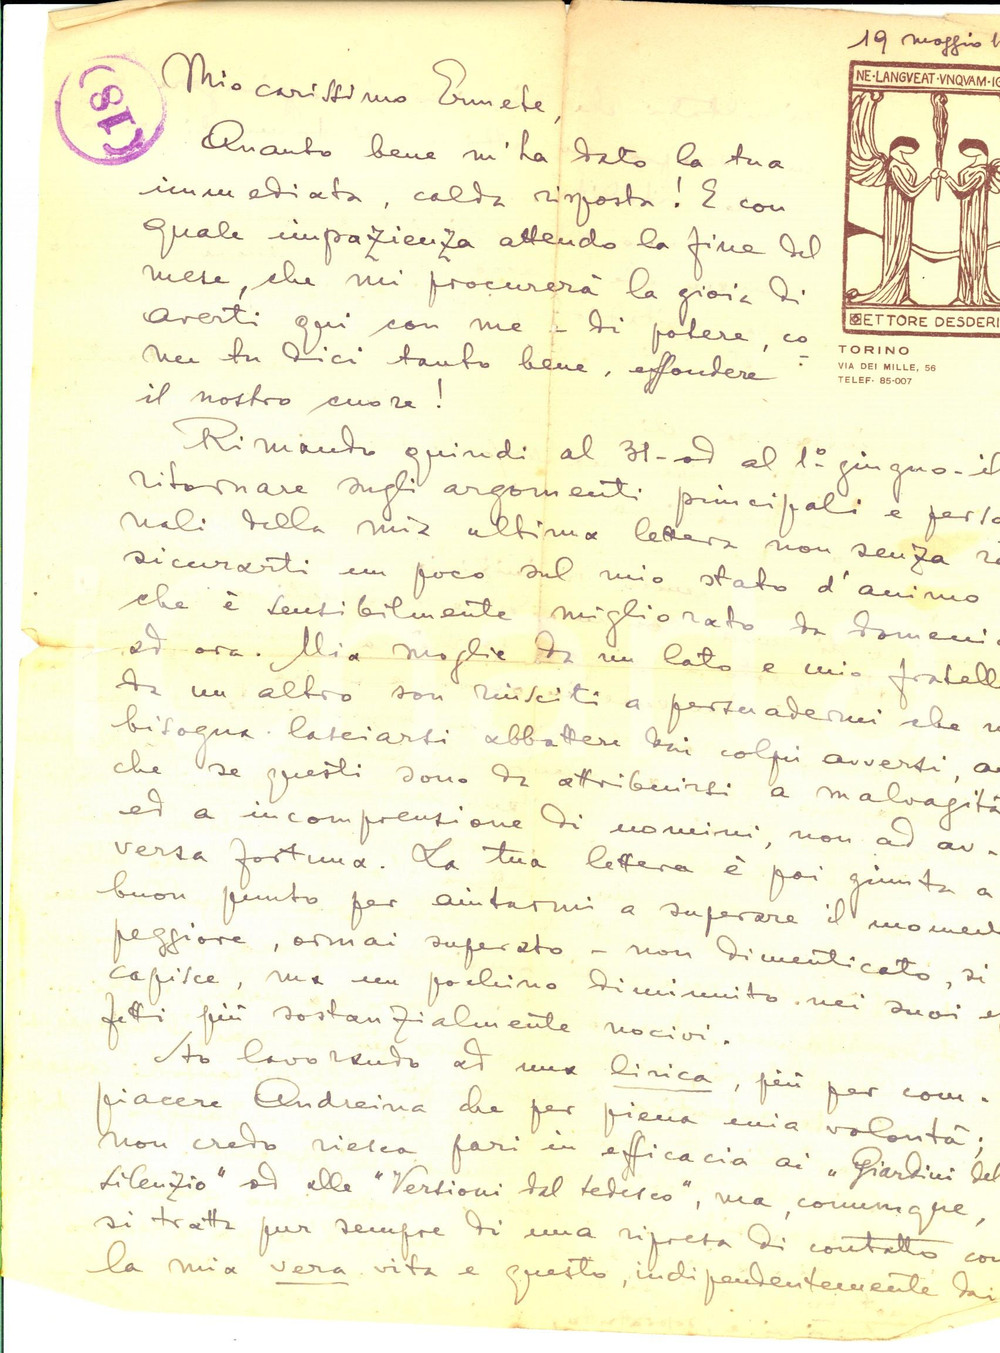 19 maggio
(18)
NE·LANGVEAT·VNQVAM·
ETTORE DESDERI
TORINO
VIA DEI MILLE, 56
TELEF· 85-007
Mio carissimo Ermete,
Quanto bene m'ha dato la tua
immediata, calda risposta! E con
quale impazienza attendo la fine del
mese, che mi procurerà la gioia di
averti qui con me – di potere, co
me tu dici tanto bene, effondere
il nostro cuore!
Rimando quindi al 31 – od al 1º giugno – il
ritornare sugli argomenti principali e perso
nali della mia ultima lettera non senza ras
sicurarti un poco sul mio stato d'animo
che è sensibilmente migliorato da domenica
ad ora. Mia moglie da un lato e mio fratello
da un altro son riusciti a persuadermi che n
bisogna lasciarsi abbattere dai colpi avversi, an
che se questi sono da attribuirsi a malvagità
ed a incomprensione di uomini, non ad av-
versa fortuna. La tua lettera è poi giunta a
buon punto per aiutarmi a superare il momento
peggiore, ormai superato – non dimenticato, si
capisce, ma un pochino diminuito nei suoi ef
fetti più sostanzialmente nocivi.
Sto lavorando ad una lirica, più per com-
piacere Andreina che per piena mia volontà;
non credo riesca pari in efficacia ai "Giardini del
silenzio" od alle "Versioni dal tedesco", ma, comunque,
si tratta pur sempre di una ripresa di contatto con
la mia vera vita e questo, indipendentemente dai